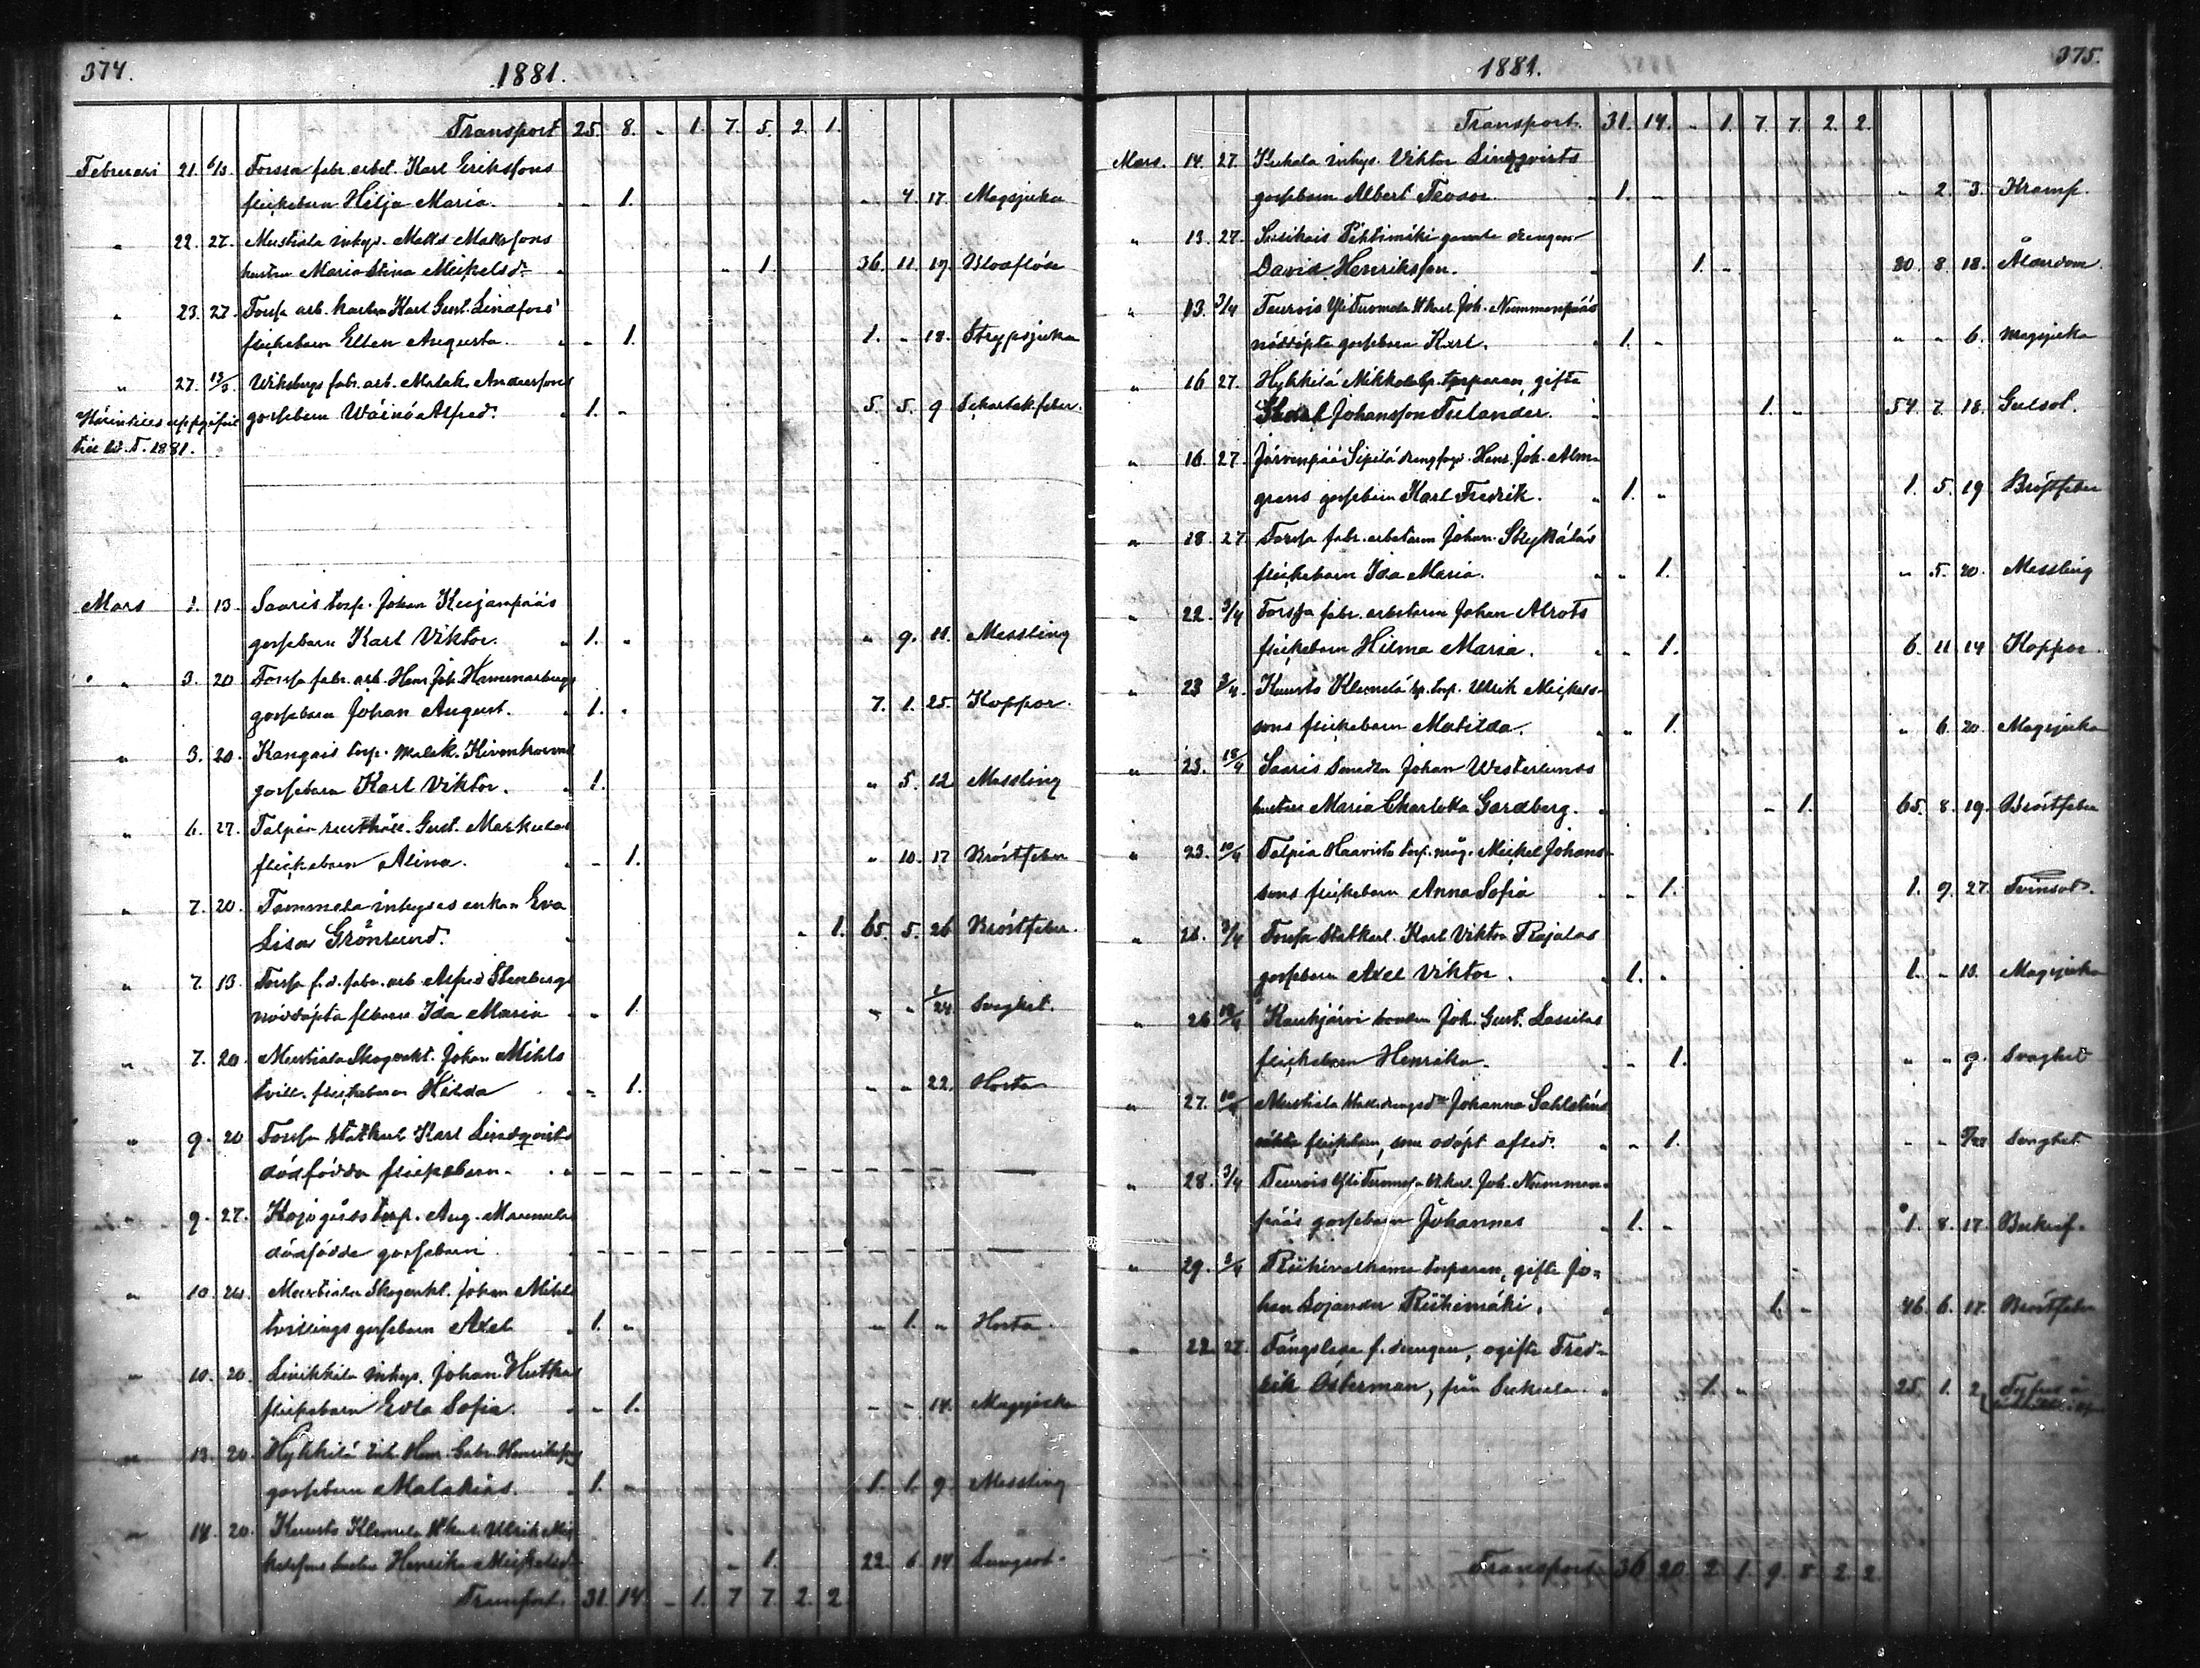 374.
1881.
Transport 25. 8. - 1. 7. 5. 2. 1.
Februari 21. 6/3 Forssa fabr. arbet. Karl Erikssons
flickebarn Hilja Maria. " - 1. - 4. 17. Magsjuka
" 22. 27. Mustiala inhys. Matts Mattssons
hustru Maria Stina Mickelsdr. " 1. 36. 11. 19. Blodflöde
" 23. 27. Forssa arb. karlen Karl Gust. Lindfors'
flickebarn Ellen Augusta. " - 1. 1. - 18. Strypsjuka
" 27. 13/3 Wiksbergs fabr. arb. Malak. Anderssons
gossebarn Wäinö Alfred. " 1. - 5. 5. 9 Scharlak. feber.
till 1881.
Mars 1. 13. Saaris torp. Johan Kujanpääs
gossebarn Karl Viktor. " 1. " " 9. 11. Messling
" 3. 20 Forssa fabr. arb. Henr. Joh. Hammarbergs
gossebarn Johan August. " 1. " 7. 1. 25. Koppor.
" 3. 20. Kangais torp. Malak. Kivenhovmas
gossebarn Karl Viktor. " 1. " 5. 12 Messling
" 6. 27. Talpia rusthåll. Gust. Markulas
flickebarn Alina. " - 1. " 10. 17 Bröstfeber
" 7. 20. Tammela inhyses enkan Eva
Lisa Grönlund. " " 1. 65. 5. 26 Bröstfeber.
" 7. 13. Forssa f.d. fabr. arb Alfred Stenbergs
nöddöpta flbarn Ida Maria " - 1. " " 1/24 Svaghet.
" 7. 20. Mustiala Skogvakt. Johan Mihls
tvill. flickebarn Hilda " - 1. " " 22. Hosta
" 9. 20 Forssa statkarl Karl Lindqvists
dödfödda flickebarn.
" 9. 27. Kojo gårds torp. Aug. Mannelas
dödfödde gossebarn
" 10. 20. Mustiala Skogvakt. Johan Mihls
tvillings gossebarn Axel " 1. " " 1. " Hosta
" 10. 20. Linikkala inhys. Johan Huttkas
flickebarn Edla Sofia. " - 1. - - 14. Magsjuka
" 13. 20. Hykkilä Henr. Gabr. Henrikssons
gossebarn Malakias. " 1. " 1. 1. 9. Messling
" 14. 20. Kuusto Klemela st.karl Ulrik Mic
kelssons hustru Henrika Mickelsdr. " 1. 22. 6. 14. Lungsot.
Transport. 31. 14. - 1. 7 7. 2. 2
375.
1881.
Transport. 31. 14. " 1. 7. 7. 2. 2.
Mars. 14. 27. Kuhala inhys. Viktor Lindqvists
gossebarn Albert Teodor. " 1. - " 2. 3. Kramp.
" 13. 27. Susikais Pehtimäki gamla drengen
David Henriksson. " 1. - 80. 8. 18. Ålderdom.
" 13. 3/4 Teurois Yli Tuomola st.karl Joh. Nummenpääs
nöddöpta gossebarn Karl. " 1. - " " 6. Magsjuka
" 16 27. Hykkilä Mikkola bp. torparen, gifte
Karl Johansson Tulander. 1. - 54. 7. 18. Gulsot.
" 16 27. Järvenpää Sipilä drengfogd. Henr. Joh. Alm-
grens gossebarn Karl Fredrik. " 1. " 1. 5. 19 Bröstfeber
" 18 27 Forssa fabr. arbetaren Johan
flickebarn Ida Maria. " " 1. " 5. 20. Messling
" 22. 3/4 Forssa fabr. arbetaren Johan Alrots
flickebarn Hilma Maria. " " 1. 6. 11 14 Koppor.
" 23 3/4. Kuusto Klemelä bp. torp. Ulrik Mickels-
sons flickebarn Matilda. " " 1. " 6. 20. Magsjuka
" 23. 18/4 Saaris smeden Johan Westerlunds
hustru Maria Charlotta Gardberg. " - 1. 65. 8. 19. Bröstfeber
" 23. 10/4 Talpia Haavisto torp. måg. Mickel Johans-
sons flickebarn Anna Sofia " - 1. 1. 9. 27. Tvinsot.
" 3/4 Forssa Statkarl. Karl Viktor Rajalas
gossebarn Axel Viktor. " 1. - 1. - 13. Magsjuka
" 26 18/4 Kaukjärvi Joh. Gust. Lassilas
flickebarn Henrika. " - 1. " " 9 Svaghet
" 27. 10/4 Mustiala Johanna Sahlsténs
flickebarn, som odöpt afled. " - 1. - - Svaghet
" 28. 3/4 Teurois Yli Tuomola st.karl. Joh. Nummen-
pääs gossebarn Johannes " 1. - 1. 8. 17.
" 29. 3/4 Riihivalkama torparen, gifte Jo-
han Riihimäki. " 1. - 46. 6. 12. Bröstfeber
" 22. 27. Fängslade f. drengen, ogifte Fred-
rik Österman, från 1. " 25. 1. 2
Transport. 36 20. 2. 1. 9. 8. 2. 2.